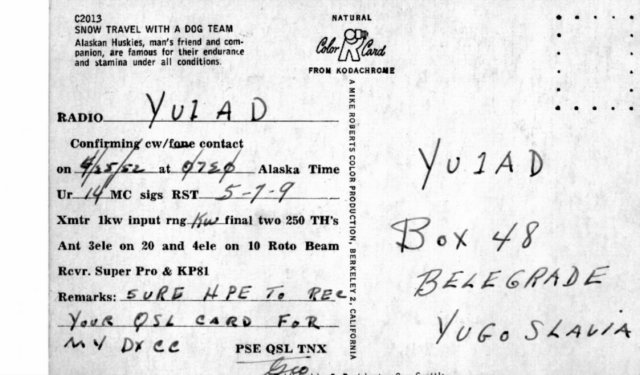 C2013
SNOW TRAVEL WITH A DOG TEAM
Alaskan Huskies, man's friend and com-
panion, are famous for their endurance
and stamina under all conditions.
NATURAL
Color Card
FROM KODACHROME
A MIKE ROBERTS COLOR PRODUCTION, BERKELEY 2, CALIFORNIA
RADIO YU1AD
Confirming cw/fone contact
on 4/25/52 at Alaska Time
Ur 14 MC sigs RST 5-7-9
Xmtr 1kw input rng Kw final two 250 TH's
Ant 3ele on 20 and 4ele on 10 Roto Beam
Rcvr. Super Pro & KP81
Remarks: SURE HPE TO REC
YOUR QSL CARD FOR
MY DXCC PSE QSL TNX
Geo
YU1AD
Box 48
BELEGRADE
YUGOSLAVIA